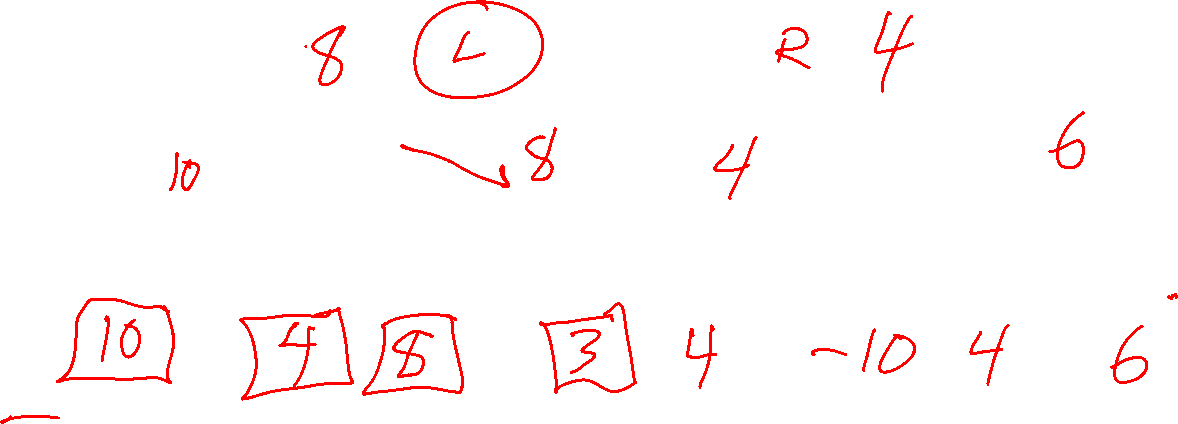 8 L R 4
10 8 4 6
10 4 8 3 4 -10 4 6